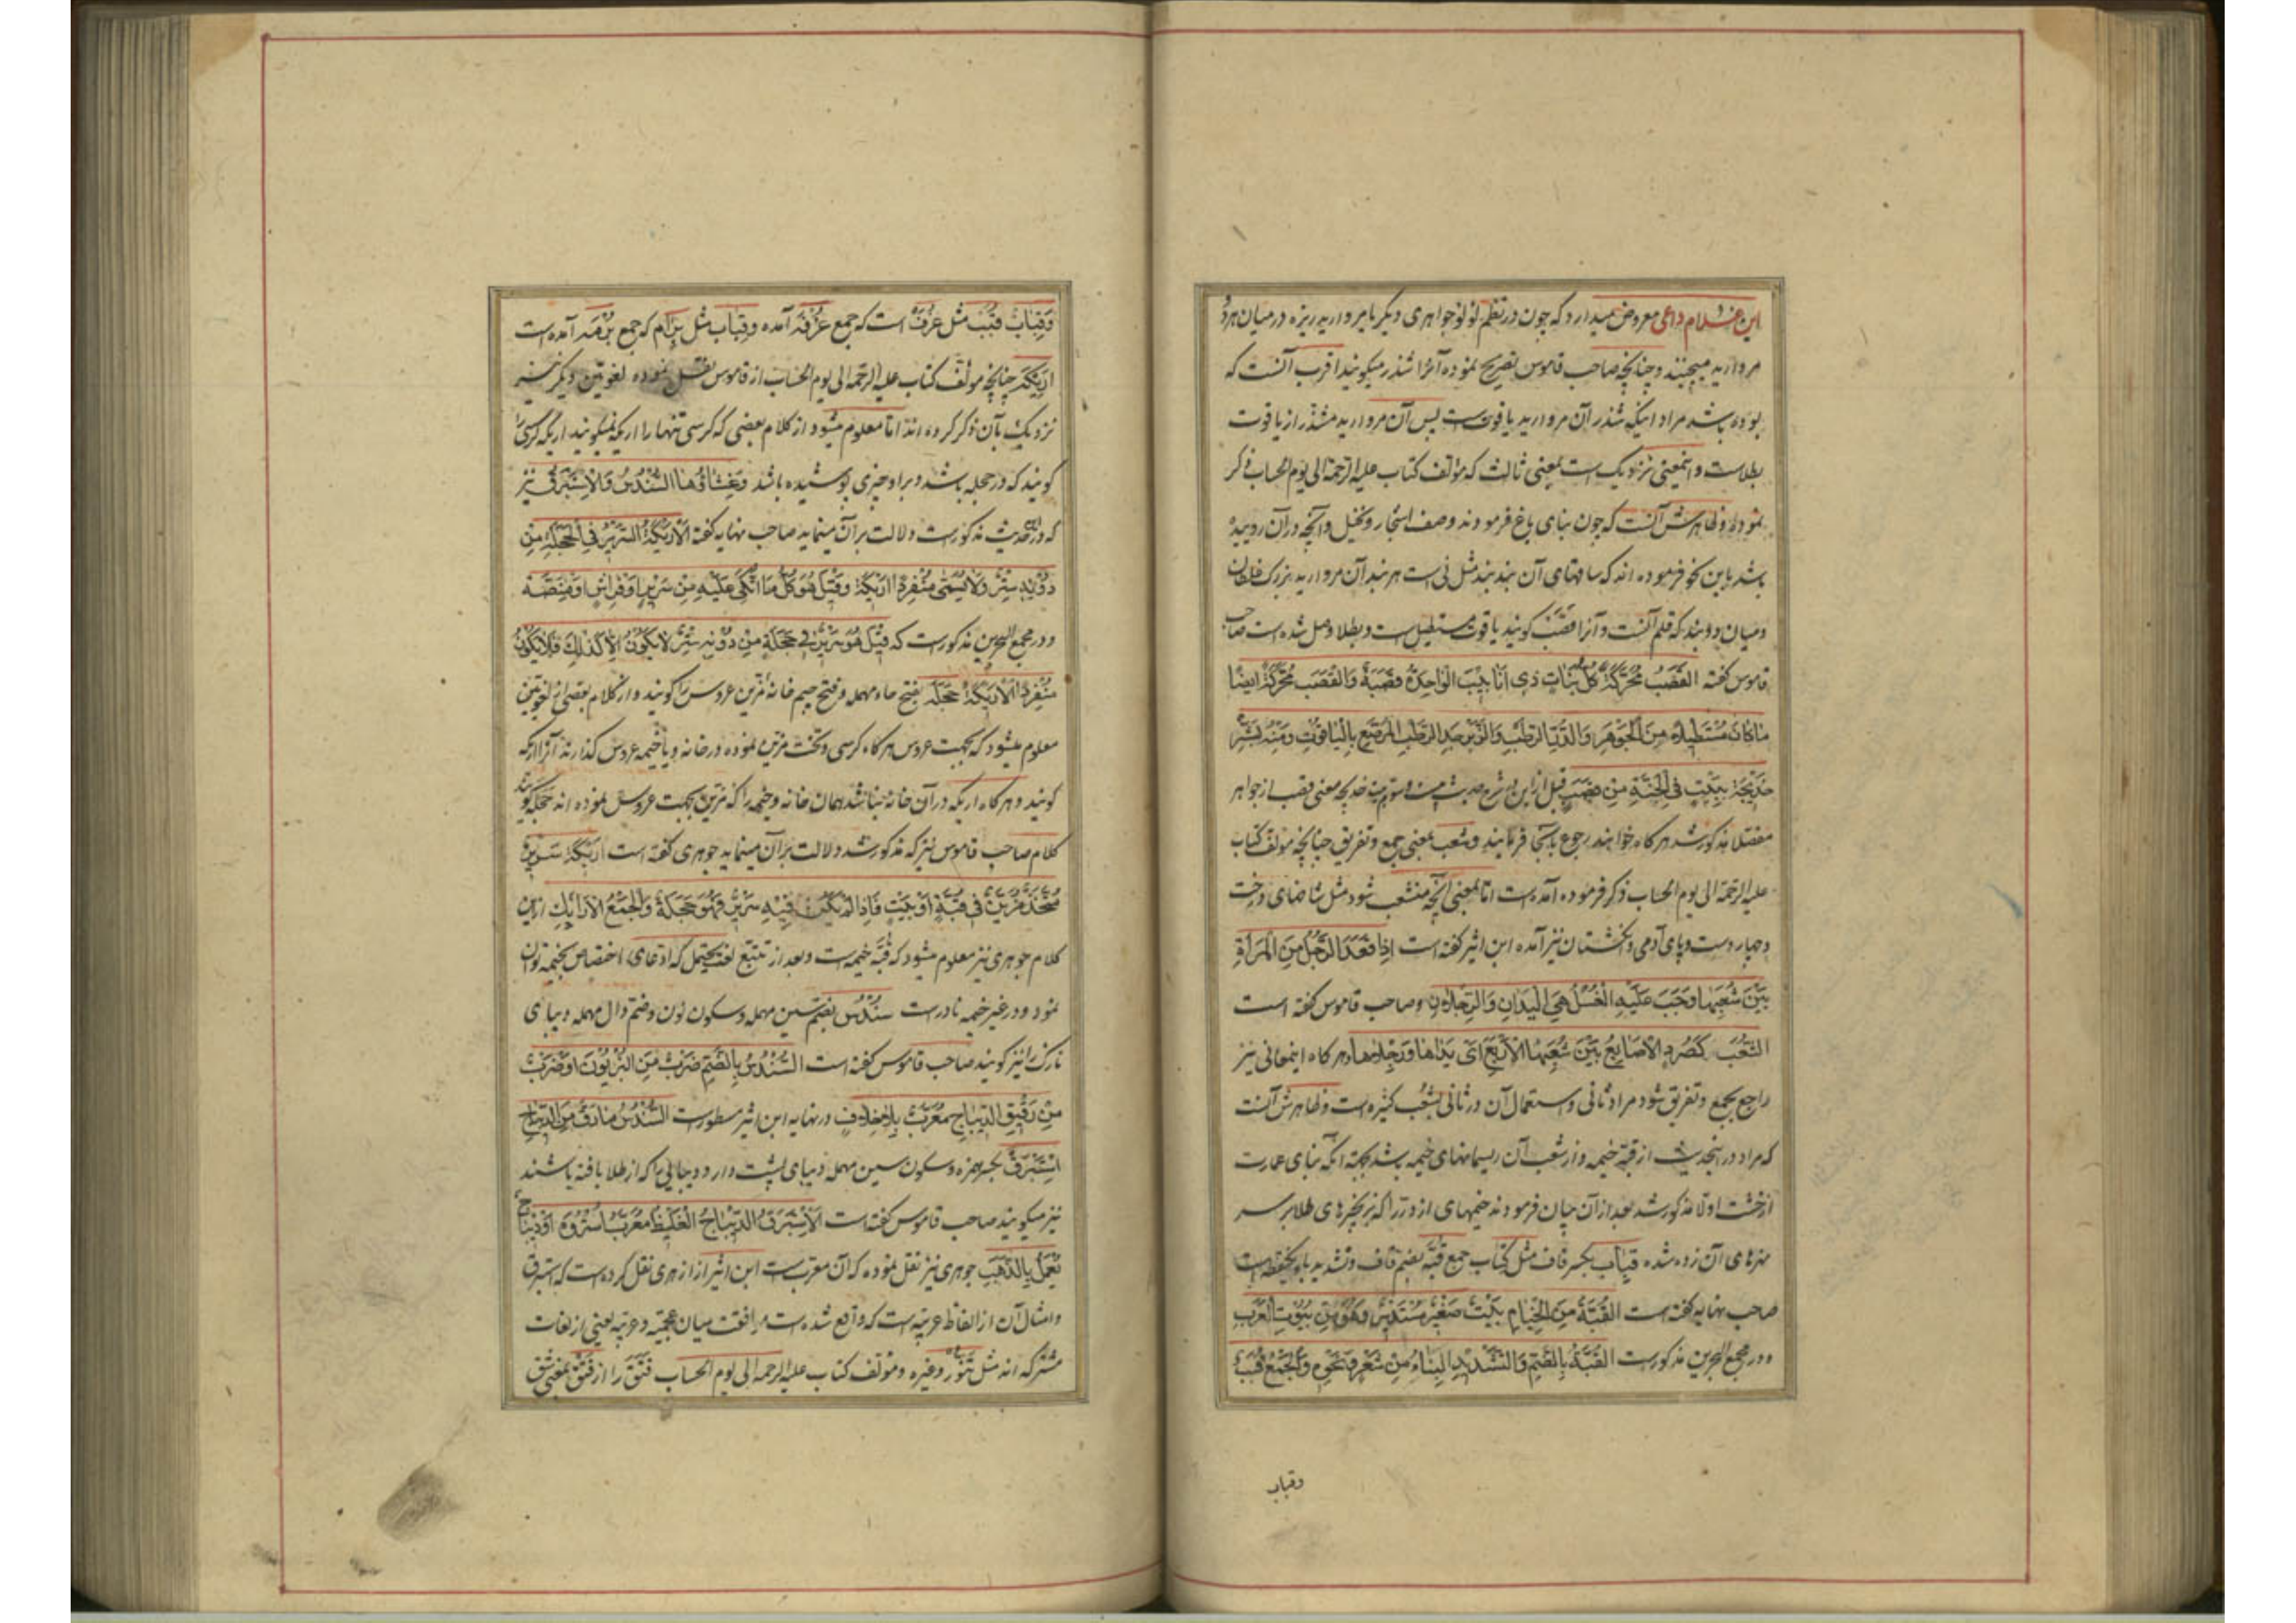 این غلام داعی معروض میدارد که چون در نظم لؤلؤ جواهری دیگر یا مروارید ریزه در میان هر دو
مروارید میچینند و چنانچه صاحب قاموس تصریح نموده آنرا شذر میگویند اقرب آنست که
بوده باشد مراد اینکه شذر آن مروارید یاقوتست پس آن مروارید مشذر از یاقوت
بطلاست و اینمعنی نزدیک است بمعنی ثالث که مؤلف کتاب علیه الرحمة الی یوم الحساب ذکر
نموده و ظاهرش آنست که چون بنای باغ فرمودند وصف اشجار و نخیل و آنچه در آن روییده
باشد باین نحو فرموده اند که ساقهای آن بند بند مثل نی است هر بند آن مروارید بزرک غلطان
و میان دو بند که قلم آنست و آنرا قصب کویند یاقوت مستطیلست و بطلا وصل شده است صاحب
قاموس کفته القصب محرکة کل نبات ذی انابیب الواحدة قصبة والقصب محرکة ایضا
ما کان مستطیلا من الجوهر والدر الرطب والزبرجد الرطب المرصع بالیاقوت ومنه بشر
خدیجة ببیت فی الجنة من قصب قبل ازین در شرح حدیث خدیجه معنی قصب از جواهر
مفصلا مذکور شد هر کاه خواهند رجوع بآنجا فرمایند و شعب بمعنی جمع و تفریق چنانچه مولف کتاب
علیه الرحمة الی یوم الحساب ذکر فرموده آمده است اما بمعنی آنچه منشعب شود مثل شاخهای درخت
و چهار دست و پای آدمی و انکشتان نیز آمده ابن اثیر کفته است اذا قعد الرجل من المرأة
بین شعبها وجب علیه الغسل هی الیدان والرجلان و صاحب قاموس کفته است
الشعب کصرد الاصابع بین شعبها الاربع ای یداها ورجلاها و هر کاه اینمعانی نیز
راجع بجمع و تفریق شود مراد ثانی و استعمال آن در ثانی بشعب کثیره است و ظاهرش آنست
که مراد در اینحدیث از قبه خیمه و از شعب آن ریسمانهای خیمه باشد بجهة آنکه بنای عمارت
از خشت اولا مذکور شد بعد از آن بیان فرمودند خیمهای از در را که زنجیرهای طلا بر سر
نهرهای آن زده شده قباب بکسر قاف مثل کتاب جمع قبه بضم قاف و تشدید باء
صاحب نهایه کفته است القبة من الخیام بیت صغیر مستدیر وهو من بیوت العرب
و در مجمع البحرین مذکورست القبة بالضم والتشدید البناء من شعر ونحوه والجمع قبب
وقباب
وقباب قبب مثل غرف است که جمع غرفه آمده و قباب مثل برام که جمع برمه آمده است
اریکه چنانچه مؤلف کتاب علیه الرحمة الی یوم الحساب از قاموس نقل نموده لغویین دیکر نیز
نزدیک بآن ذکر کرده اند اما معلوم میشود از کلام بعضی که کرسی تنها را اریکه نمیگویند اریکه کرسی را
کویند که در حجله باشد و بر او چیزی پوشیده باشد وغشاؤها السندس والاستبرق نیز
که در این حدیث مذکورست دلالت بر آن مینماید صاحب نهایه کفته الاریکة السریر فی الحجلة من
دونه ستر ولا یسمی منفردا اریکة وقیل هو کل ما اتکئ علیه من سریر او فراش او منصة
و در مجمع البحرین مذکورست که قیل هو سریر فی حجلة من دونه ستر لا یکون الا کذلک فلا یکون
منفردا الاریکة حجله بفتح حاء مهمله و فتح جیم خانه مزین عروس را کویند و از کلام بعضی از لغویین
معلوم میشود که بجهت عروس هر کاه کرسی و تخت مزین نموده در خانه و یا خیمه عروس کذارند آنرا اریکه
کویند و هر کاه اریکه در آن خانه نباشد همان خانه و خیمه را که مزین بجهت عروس نموده اند حجله کویند
کلام صاحب قاموس نیز که مذکور شد دلالت بر آن مینماید جوهری کفته است اریکة سریر
متخذ مزین فی قبة او بیت فاذا لم یکن فیه سریر فهو حجلة والجمع الارائک ازین
کلام جوهری نیز معلوم میشود که قبه خیمه است و بعد از تتبع لغت یحتمل که ادعای اختصاص بخیمه توان
نمود و در غیر خیمه نادرست سندس بضم سین مهمله و سکون نون و ضم دال مهمله دیبای
نازک را نیز کویند صاحب قاموس کفته است السندس بالضم ضرب من البزیون او ضرب
من رقیق الدیباج معرب بلا خلاف در نهایه ابن اثیر مسطورست السندس ما رق من الدیباج
استبرق بکسر همزه و سکون سین مهمله دیبای پشت دار و دیبایی را که از طلا بافته باشند
نیز میکویند صاحب قاموس کفته است الاستبرق الدیباج الغلیظ معرب استروه او دیباج
یعمل بالذهب جوهری نیز نقل نموده که آن معرب است ابن اثیر از ازهری نقل کرده است که استبرق
و امثال آن از الفاظ عربیه است که واقع شده است موافقت میان عجمیه و عربیه یعنی از لغات
مشترکه اند مثل تنور و غیره و مؤلف کتاب علیه الرحمه الی یوم الحساب فتق را از فتق بمعنی شق